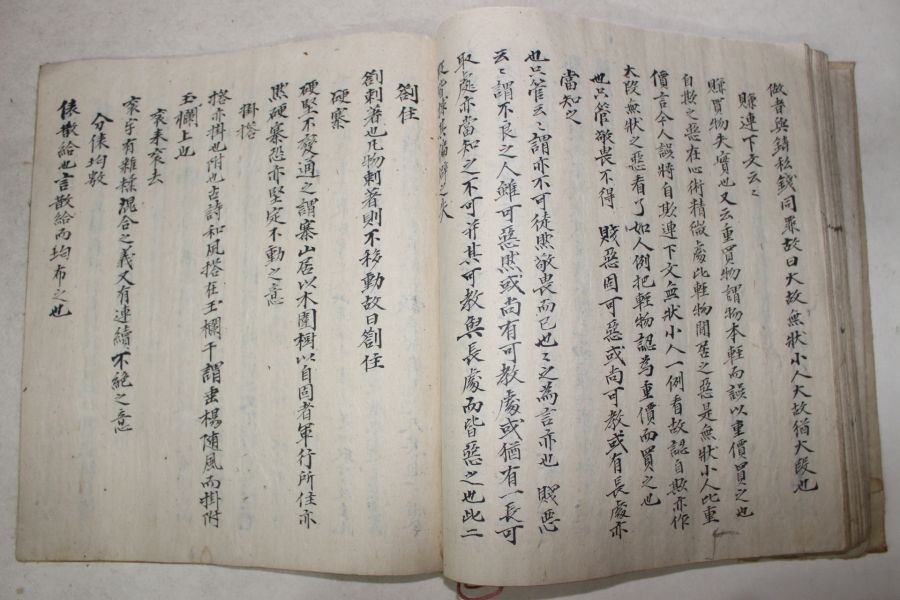 做者與鑄私錢同罪故曰大故無狀小人大故猶大段也
賺連下文云云
賺買物失實也又云重買物謂物本輕而誤以重價買之也
自欺之惡在心術精微處比輕物閒居之惡是無狀小人比重
價言今人誤將自欺連下文無狀小人一例看故認自欺亦作
大段無狀之惡看了如人例把輕物認為重價而買之也
也只管敬畏不得 賤惡固可惡或尚可教或有長處亦
當知之
也只管云云謂亦不可徒然敬畏而已也之之為言亦也 賤惡
云云謂不良之人雖可惡然或尚有可教處或猶有一長可
取處亦當知之不可并其可教與長處而皆惡之也此二
劄住
劄刺著也凡物刺著則不移動故曰劄住
硬寨
硬堅不變通之謂寨山居以木圍柵以自固者軍行所住亦
然硬寨恐亦堅定不動之意
掛搭
搭亦掛也附也古詩和風搭在玉欄干謂垂楊隨風而掛附
玉欄上也
衮来衮去
衮字有雜糅混合之義又有連續不絶之意
分俵均敷
俵散給也言散給而均布之也